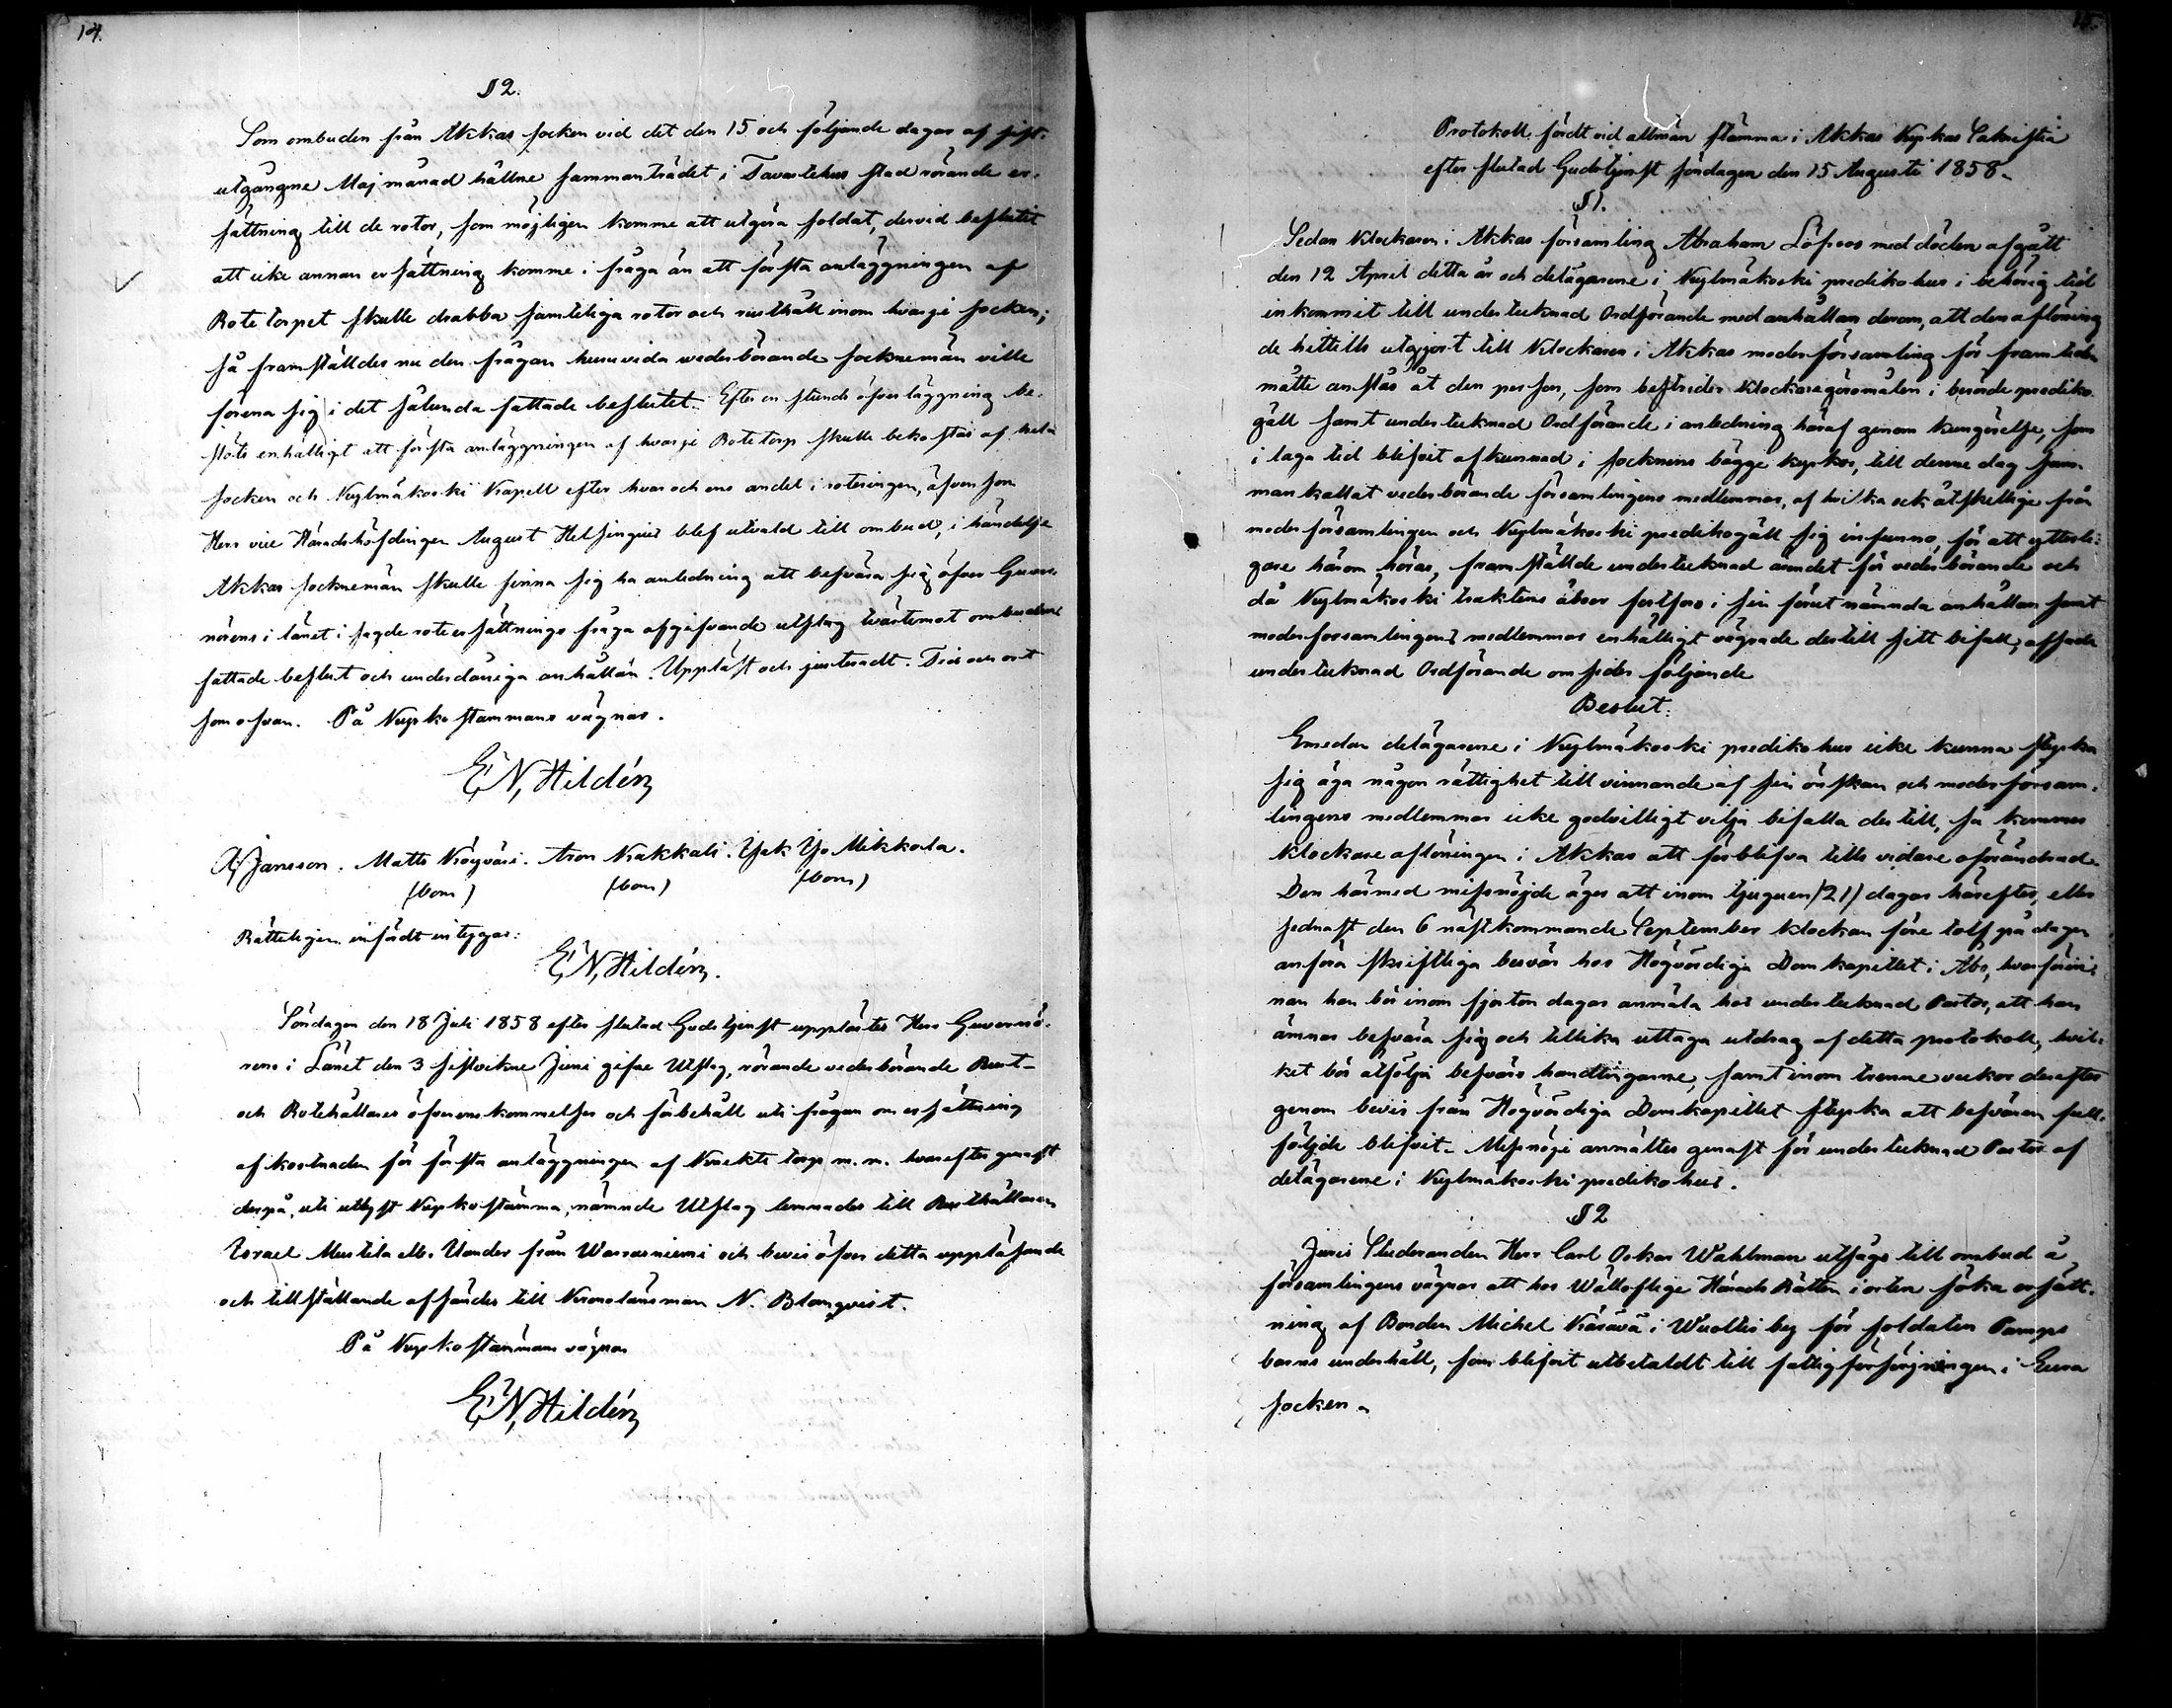 14.
§ 2.
Som ombuden från Akkas socken vid det den 15 och följande dagar af sist-
utgångne Maj månad hållne sammanträdet i Tavastehus stad rörande er-
sättning till de rotor, som möjligen komme att utgöra soldat, dervid beslutit
att icke annan ersättning komme i fråga än att första anläggningen af
Rote torpet skulle drabba samteliga rotor och rusthåll inom hvarje socken;
så framställdes nu den frågan huruvida wederbörande socknemän ville
förena sig i det sålunda fattade beslutet. Efter en stunds öfverläggning be-
slöts enhälligt att första anläggningen af hvarje Rote torp skulle bekostas af hela
socken och Kylmäkoski Kapell efter hvar och ens andel i roteringen, äfvensom
Herr vice Häradshöfdingen August Helsingius blef utvald till ombud, i händelse
Akkas socknemän skulle finna sig ha anledning att besvära sig öfver Guver-
nörens i länet i sagde roteersättnings fråga afgifvande utslag tvärtemot ombudens
fattade beslut och underdåniga anhållan. Uppläst och justeradt. Tid och ort
som ofvan. På Kyrkostämmans vägnar.
E, N, Hildén
Jansson. Matts Nröyväri. Aron Kakkali. Isak Yjo Mikkola.
(bom) (bom) (bom)
Rätteligen infördt intygar:
E, N, Hildén.
Söndagen den 18 Juli 1858 efter slutad Gudstjenst upplästes Herr Guvernö-
rens i Länet den 3 sistvikne Juni gifne Utslag, rörande vederbörande Rust-
och Rotehållares öfverenskommelser och förbehåll uti frågan om ersättning
af kostnaden för första anläggningen af Knekte torp m. m. hvarefter genast
derpå, uti utlyst Kyrkostämma, nämnde Utslag lemnades till Rusthållaren
Israel Mustila ell. Uander från Warrasniemi och bevis öfver detta uppläsande
och tillställande afsändes till Kronolänsman N. Blomqvist.
På Kyrkostämmans vägnar
E, N, Hildén
15.
Protokoll, fördt vid allmän stämma i Akkas Kyrkas Sakristia
efter slutad Gudstjenst söndagen den 15 Augusti 1858.
§ 1.
Sedan Klockaren i Akkas församling Abraham Löfroos med döden afgått
den 12 April detta år och delägarene i Kylmäkoski predikohus i behörig tid
inkommit till undertecknad Ordförande med anhållan derom, att den aflöning
de hittills utgjort till Klockaren i Akkas moderförsamling för framtiden
måtte anslås åt den person, som bestrider Klockaregöromålen i berörde prediko-
gäll samt undertecknad Ordförande i anledning häraf genom kungörelse, som
i laga tid blifvit afkunnad i socknens bägge kyrkor, till denne dag sam-
mankallat vederbörande församlingens medlemmar, af hvilka ock åtskillige från
moderförsamlingen och Kylmäkoski predikogäll sig infunno, för att ytterli-
gare härom höras, framställde undertecknad ärendet för vederbörande och
då Kylmäkoski traktens åboer fortforo i sin förut nämnda anhållan samt
moderforsamlingens medlemmar enhälligt vägrade dertill sitt bifall, afsade
undertecknad Ordförande omsider följande
Beslut:
Emedan delägarene i Kylmäkoski predikohus icke kunna styrka
sig äga någon rättighet till vinnande af sin önskan och moderförsam-
lingens medlemmar icke godvilligt vilja bifalla dertill, så kommer
klockare aflöningen i Akkas att förblifva tills vidare oförändrad.
Den härmed missnöjde äger att inom tjuguen /21/ dagar härefter, eller
sednast den 6 nästkommande September klockan före tolf på dagen
anföra skriftliga besvär hos Högvördiga Domkapitlet i Åbo, hvarförin-
nan han bör inom fjorton dagar anmäla hos undertecknad Pastor, att han
ämnar besvära sig och tillika uttaga utdrag af detta protokoll, hvil-
ket bör åtfölja besvärs handlingarne, samt inom trenne veckor derefter
genom bevis från Högvördiga Domkapitlet styrka att besvären full-
följde blifvit. Missnöje anmältes genast för undertecknad Pastor af
delägarene i Kylmäkoski predikohus.
§ 2
Juris Studeranden Herr Carl Oskar Wahlman utsågs till ombud å
församlingens vägnar att hos Wälloflige Härads Rätten i orten söka ersätt-
ning af Bonden Michel Kärävä i Wuoltis by för soldaten Pamps
barns underhåll, som blifvit utbetaldt till fattigförsörjningen i Eura
socken.